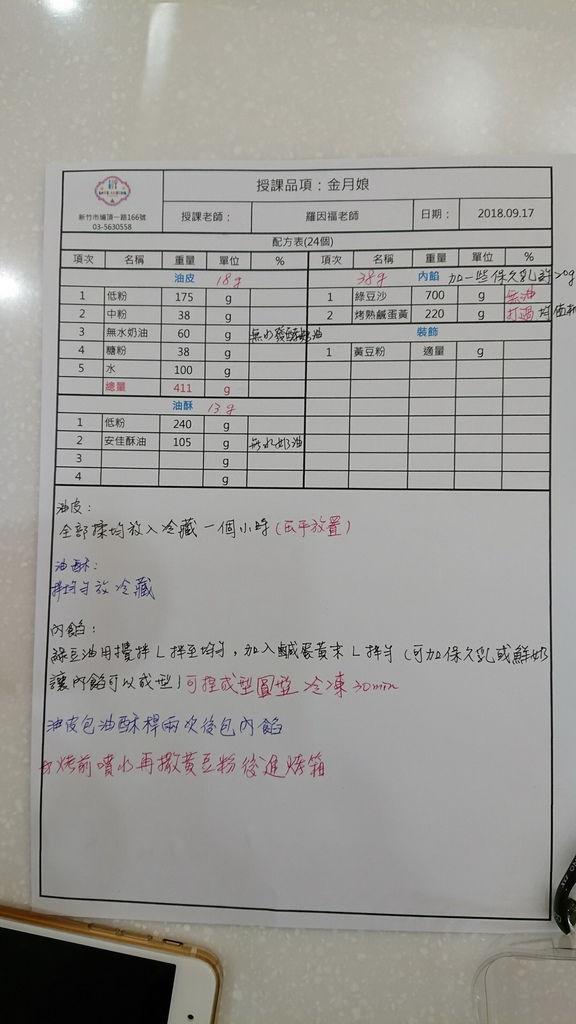 授課品項：金月娘
新竹市埔頂一路166號
03-5630558
授課老師： 羅因福老師 日期： 2018.09.17
配方表(24個)
項次 名稱 重量 單位 % 項次 名稱 重量 單位 %
油皮 18g 38g 內餡 加一些保久乳
1 低粉 175 g 1 綠豆沙 700 g 無油
2 中粉 38 g 2 烤熟鹹蛋黃 220 g 打過
3 無水奶油 60 g 無水發酵奶油 裝飾
4 糖粉 38 g 1 黃豆粉 適量 g
5 水 100 g
總量 411 g
油酥 13g
1 低粉 240 g
2 安佳酥油 105 g 無水奶油
3 g
4 g
油皮：
全部揉均放入冷藏一個小時(壓平放置)
油酥：
拌均勻放冷藏
內餡：
綠豆油用攪拌L拌至均勻，加入鹹蛋黃末L拌勻(可加保久乳或鮮奶
讓內餡可以成型)可捏成型圓型 冷凍30min
油皮包油酥桿兩次後包內餡
烤前噴水再撒黃豆粉後進烤箱